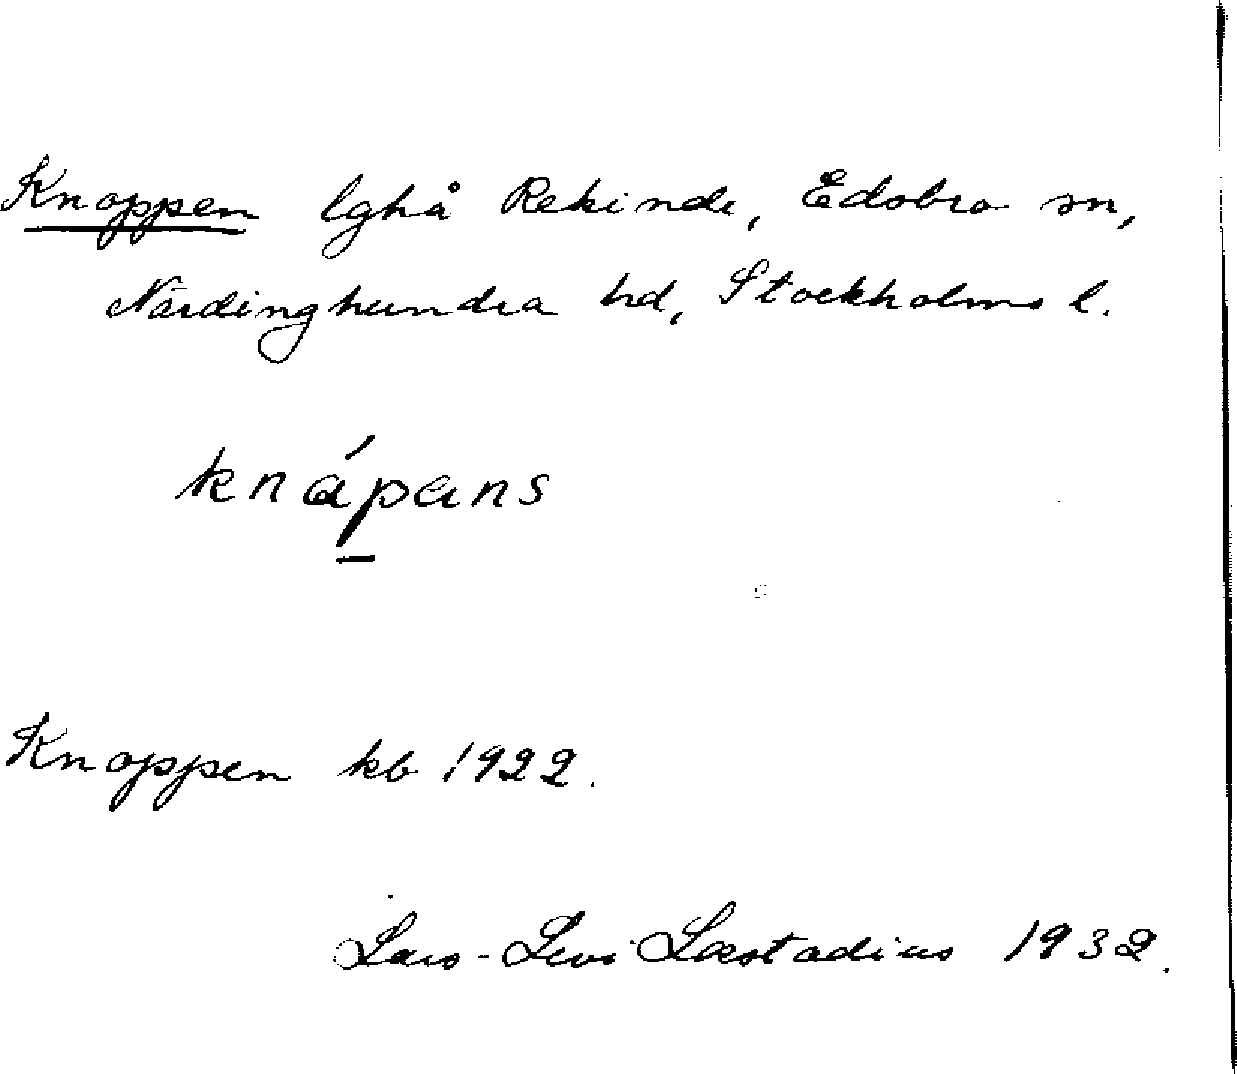 Knoppen lghå Rekinde, Edobro sn,
Närdinghundra hd, Stockholms l.
knápans
Knoppen kb 1922.
Lars-Levi Læstadius 1932.